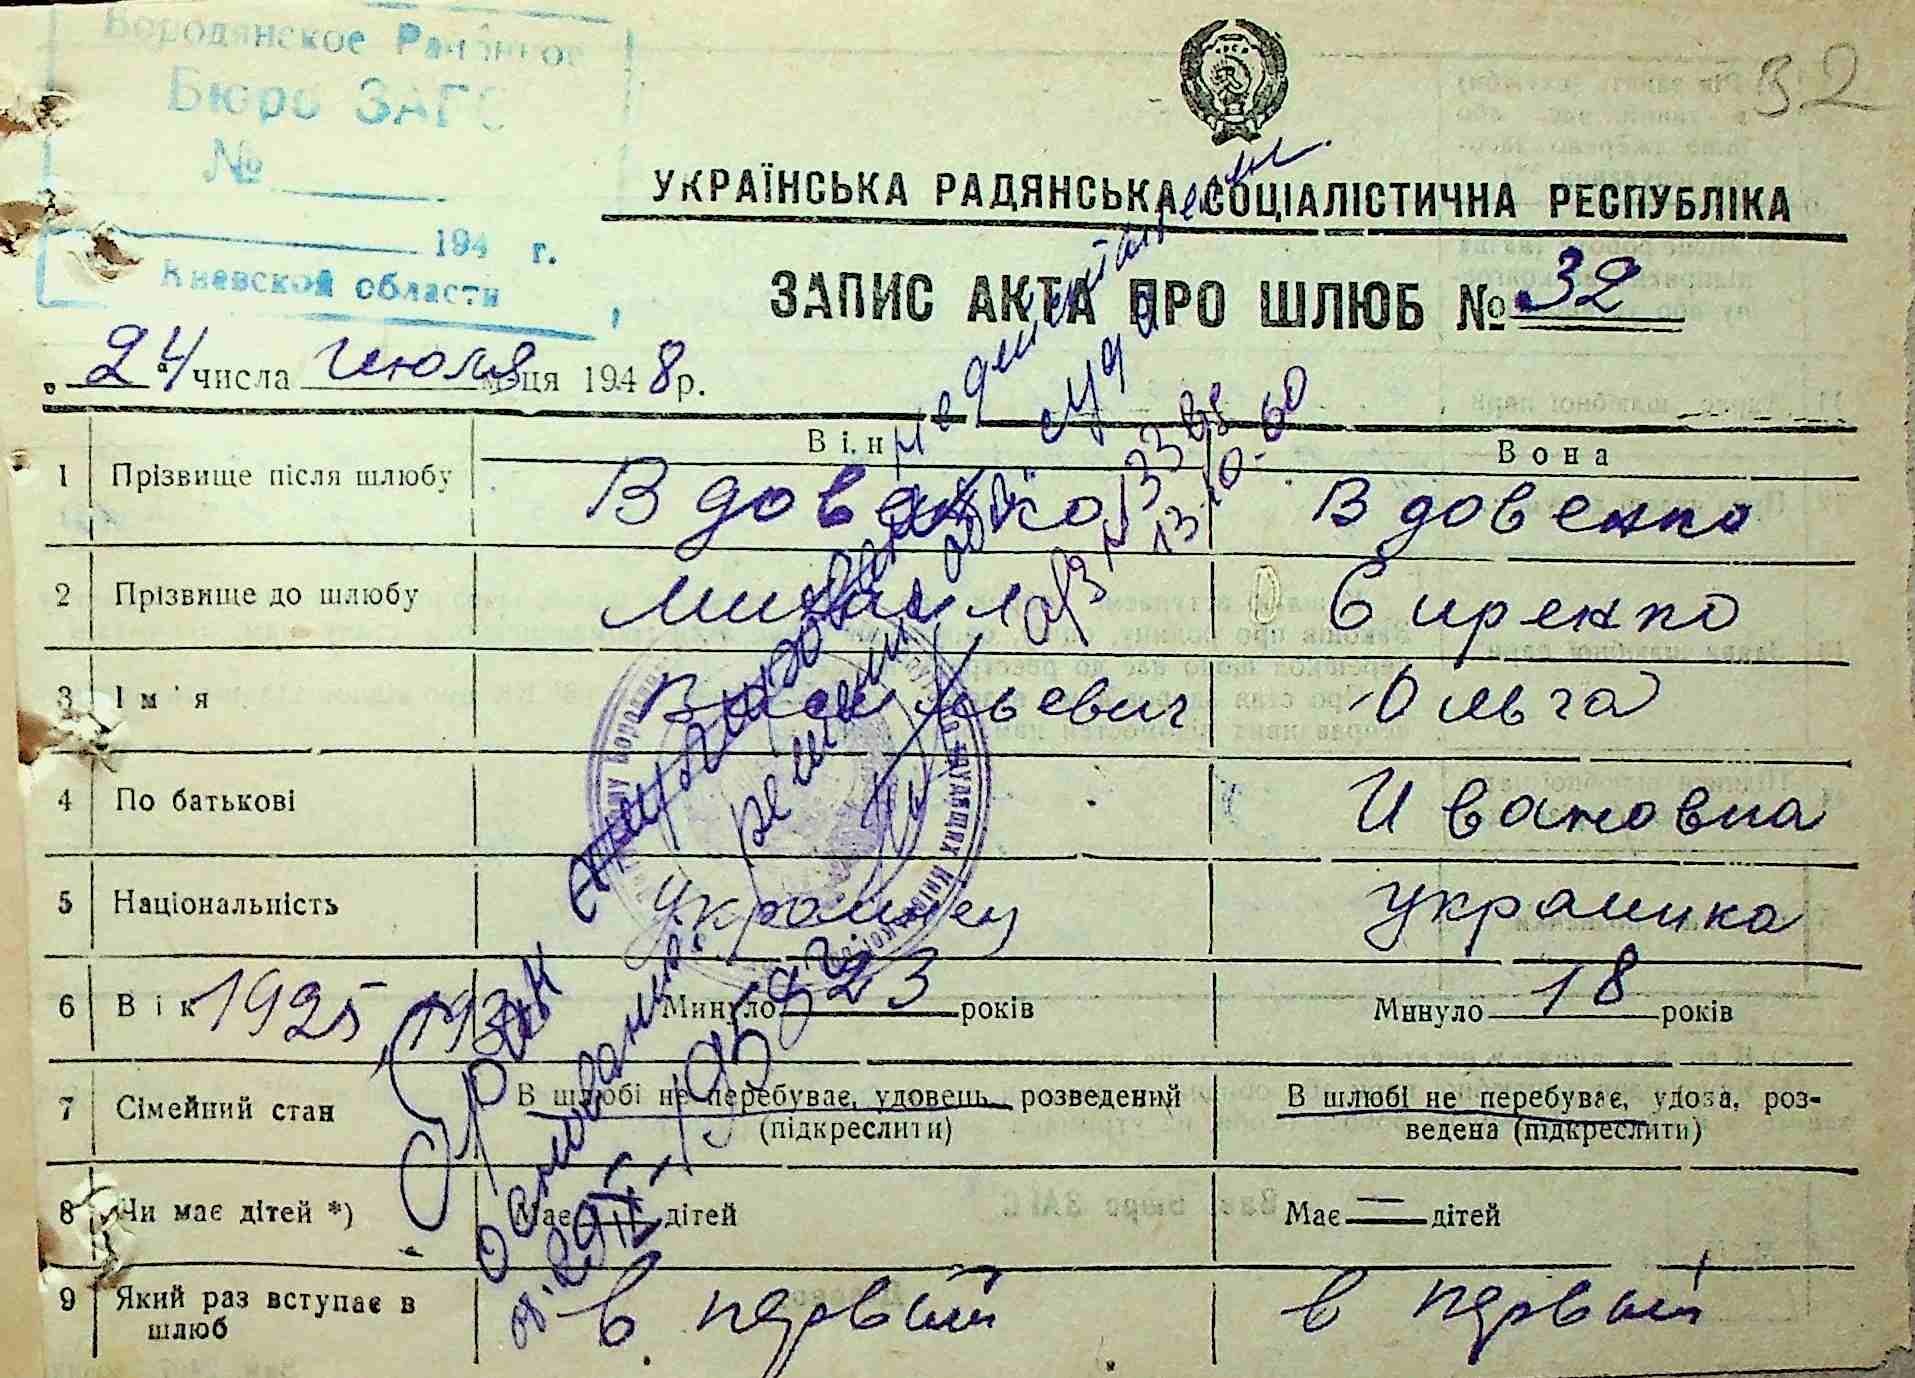 Бородянское Районное
Бюро ЗАГС
№
194 г.
Киевской области
32
УКРАЇНСЬКА РАДЯНСЬКА СОЦІАЛІСТИЧНА РЕСПУБЛІКА
ЗАПИС АКТА ПРО ШЛЮБ № 32
„24“ числа июля м-ця 1948 р.
Він Вона
1 Прізвище після шлюбу Вдовенко Вдовенко
2 Прізвище до шлюбу Михаил Сиренко
3 Ім'я Васильевич Ольга
4 По батькові Ивановна
5 Національність Украинец украинка
6 Вік 1925 Минуло 23 років Минуло 18 років
7 Сімейний стан В шлюбі не перебуває, удовець, розведений (підкреслити) В шлюбі не перебуває, удова, розведена (підкреслити)
8 Чи має дітей *) Має = дітей Має = дітей
9 Який раз вступає в шлюб в первый в первый
Брак аннулирован
основании решения
суда
13-10-60